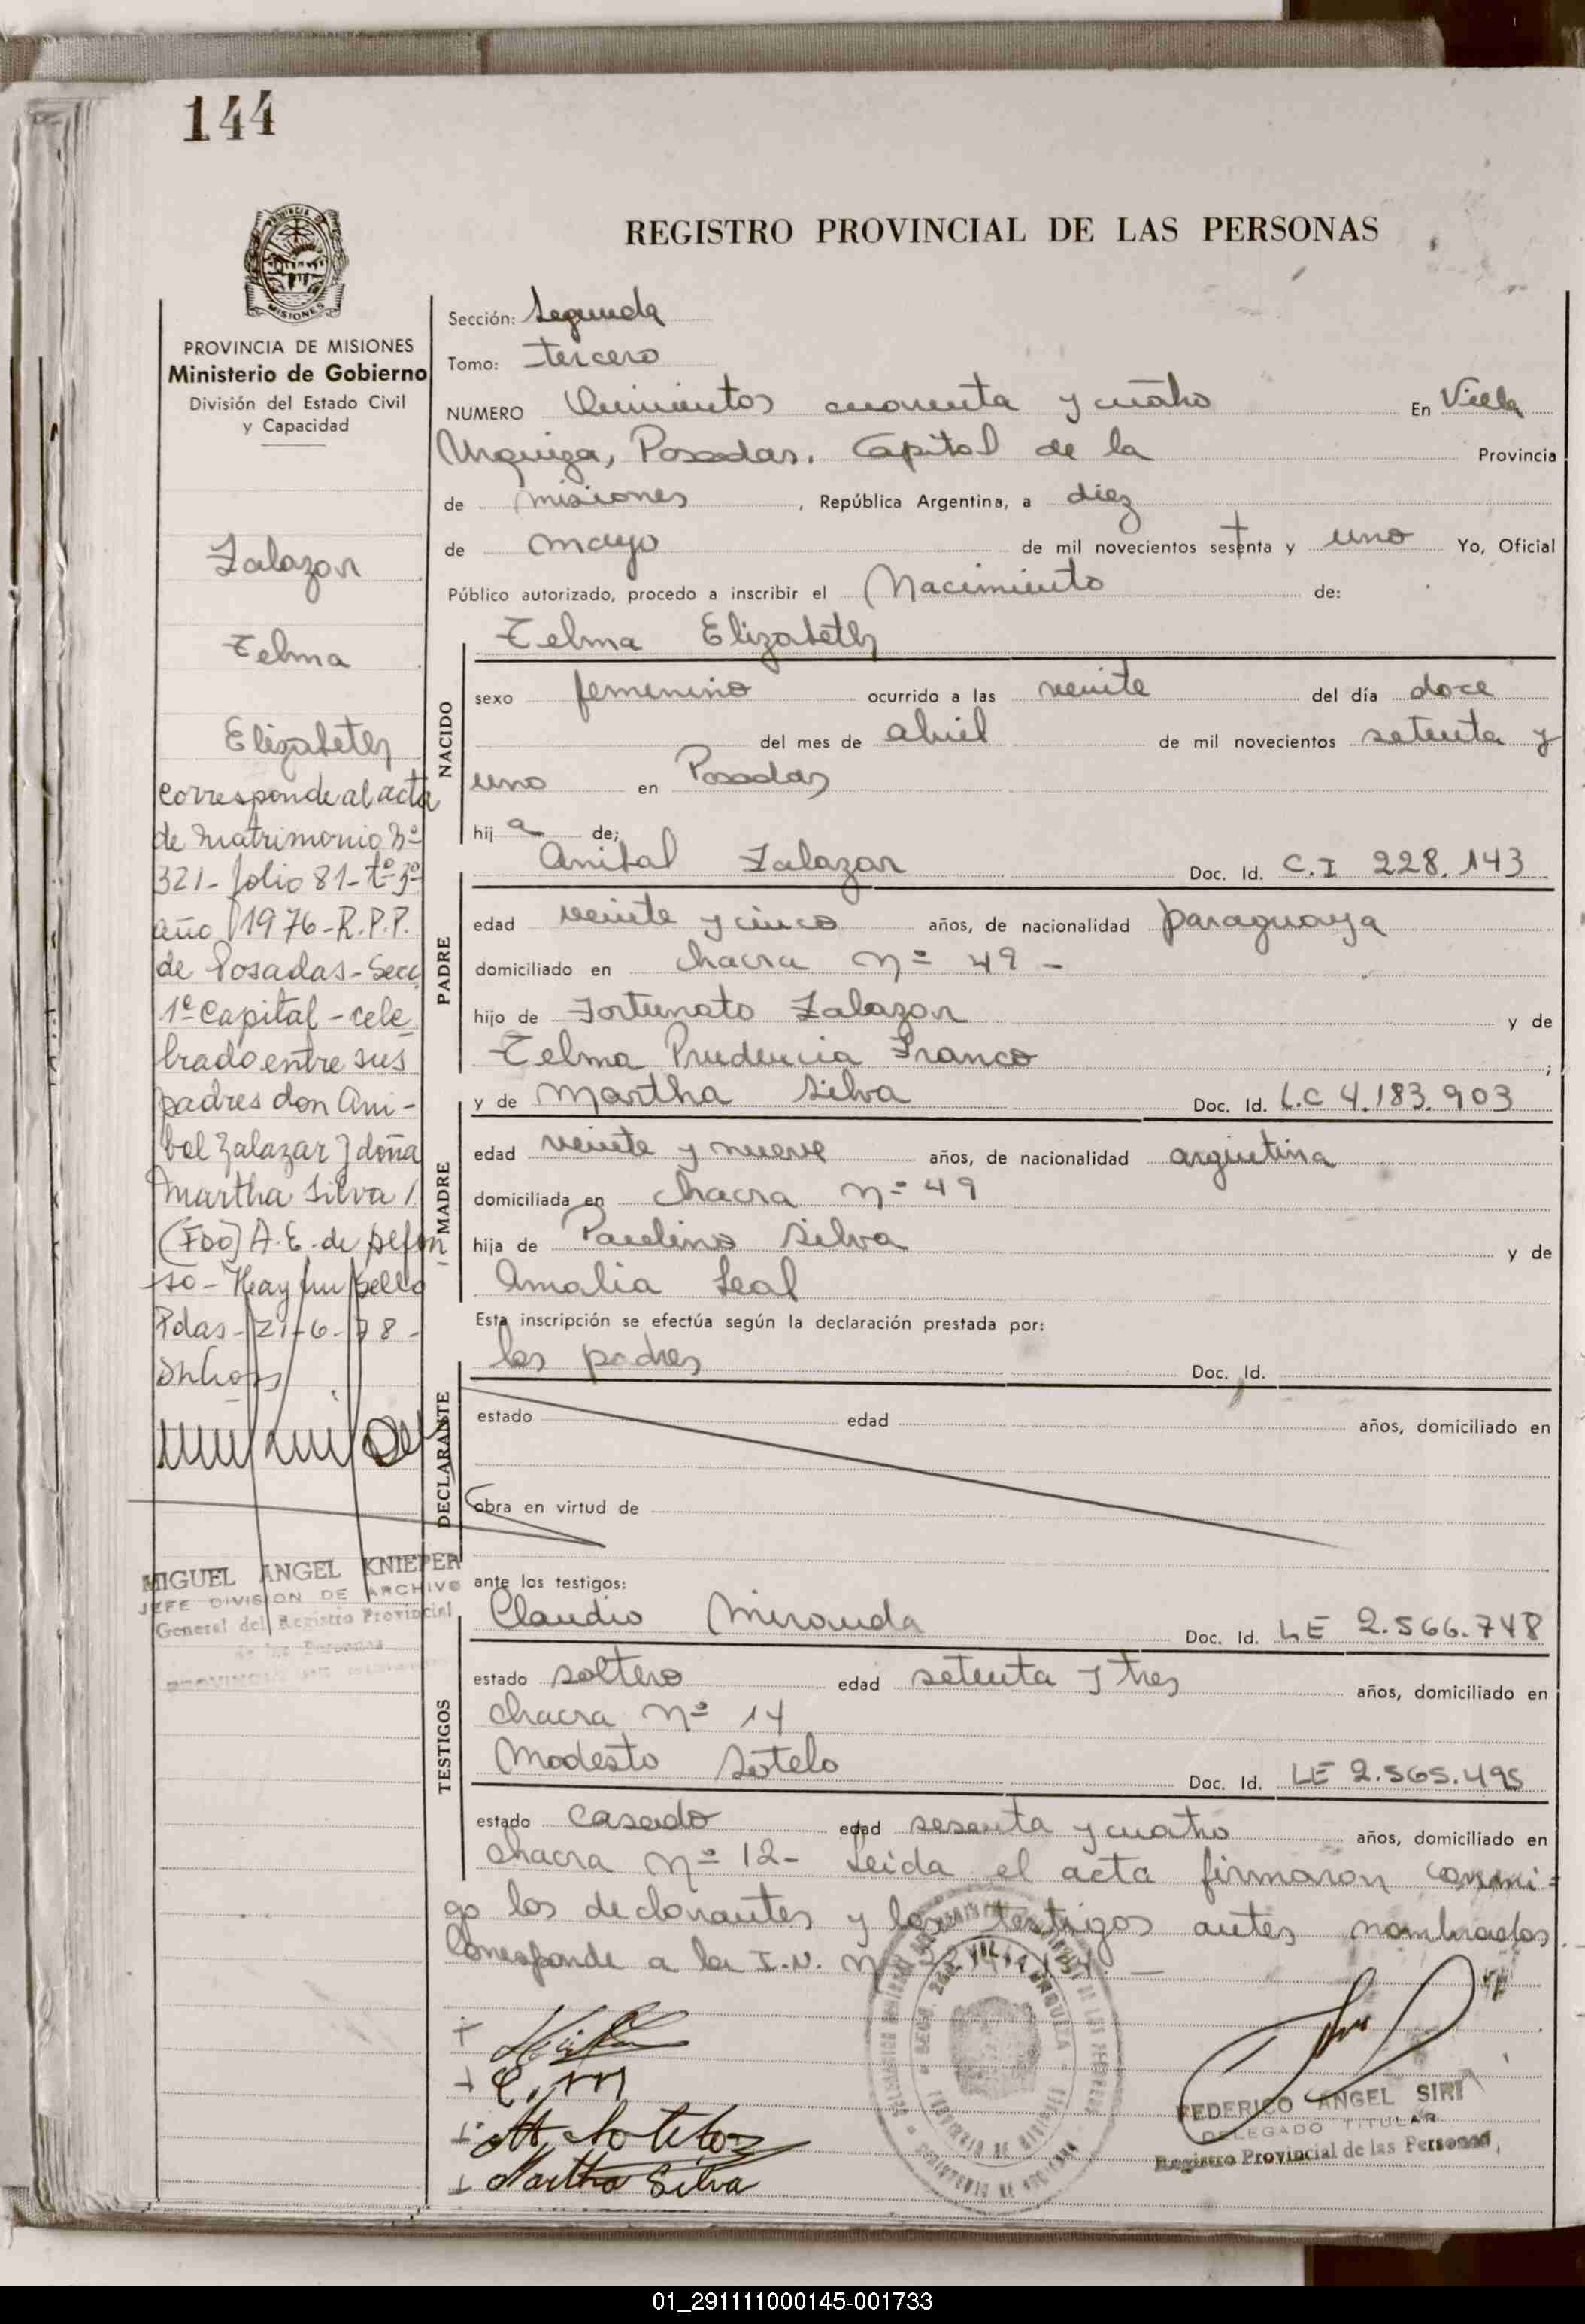 144
REGISTRO PROVINCIAL DE LAS PERSONAS
PROVINCIA DE MISIONES
Ministerio de Gobierno
División del Estado Civil
y Capacidad
Zalazar
Telma
Elizabeth
corresponde al acta
de matrimonio Nº
321- folio 81- tº 3º
año 1976- R.P.P.
de Posadas- Secc
1º Capital - cele
brado entre sus
padres don Ani-
bal Zalazar y doña
Martha Silva /
(Fdo) A. E. de
so - Hay un sello
Pdas- 21-6-78-
MIGUEL ANGEL KNIEPER
JEFE DIVISION DE ARCHIVO
General del Registro Provincial
de las Personas
Sección: Segunda
Tomo: tercero
NUMERO Quinientos cuarenta y cuatro En Villa
Urquiza, Posadas, Capital de la Provincia
de misiones, República Argentina, a diez
de mayo de mil novecientos sesenta y uno Yo, Oficial
Público autorizado, procedo a inscribir el Nacimiento de:
Telma Elizabeth
NACIDO
sexo femenino ocurrido a las veinte del día doce
del mes de abril de mil novecientos setenta y
uno en Posadas
hij a de;
Anibal Zalazar Doc. Id. C.I 228.143
PADRE
edad veinte y cinco años, de nacionalidad paraguaya
domiciliado en chacra nº 49 -
hijo de Fortunato Zalazar y de
Telma Prudencia Franco;
y de Martha Silva Doc. Id. L.C 4.183.903
MADRE
edad veinte y nueve años, de nacionalidad argentina
domiciliada en chacra nº 49
hija de Paulino Silva y de
Amalia Leal
Esta inscripción se efectúa según la declaración prestada por:
los padres Doc. Id.
DECLARANTE
estado edad años, domiciliado en
obra en virtud de
ante los testigos:
Claudio Miranda Doc. Id. LE 2.566.748
TESTIGOS
estado soltero edad setenta y tres años, domiciliado en
chacra nº 14
Modesto Sotelo Doc. Id. LE 2.565.495
estado casado edad sesenta y cuatro años, domiciliado en
chacra nº 12- Leida el acta firmaron conmi=
go los declarantes y los testigos antes nombrados.
Corresponde a la I.N. nº
C. M
M Sotelo
Martha Silva
FEDERICO ANGEL SIRI
DELEGADO TITULAR
Registro Provincial de las Personas
01_291111000145-001733